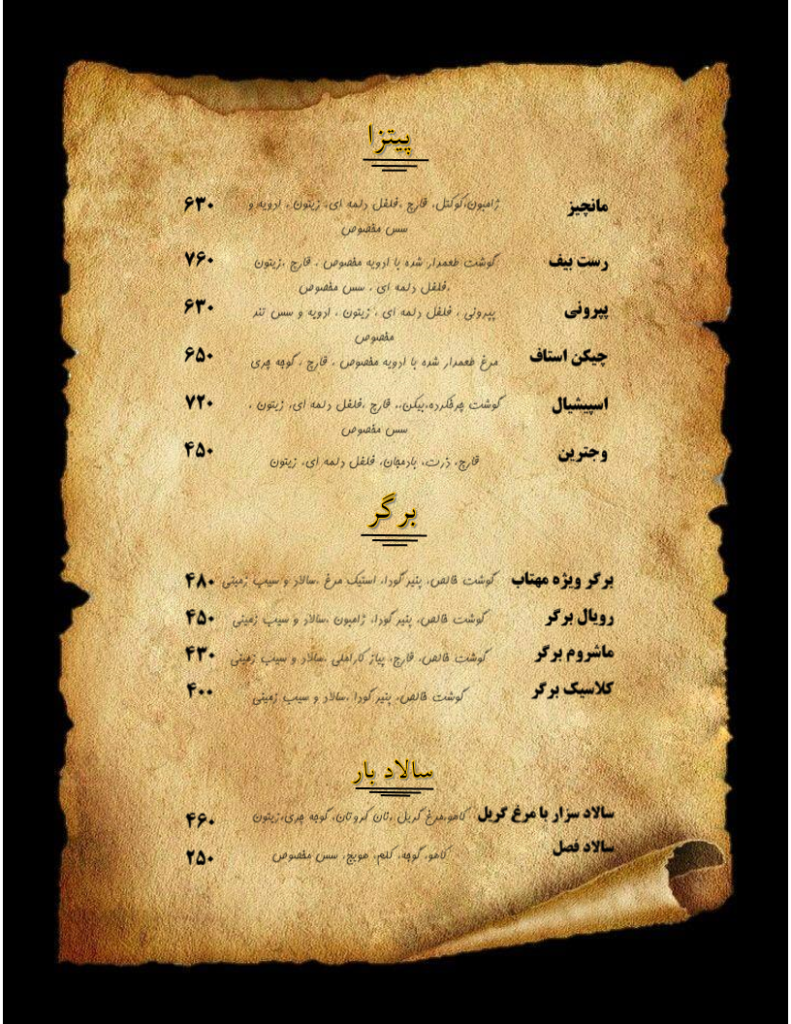 پیتزا
مانچیز ژامبون،کوکتل، قارچ ،فلفل دلمه ای، زیتون ، ادویه و ۶۳۰
سس مخصوص
رست بیف گوشت طعمدار شده با ادویه مخصوص ، قارچ ،زیتون ۷۶۰
،فلفل دلمه ای ، سس مخصوص
پپرونی پپرونی ، فلفل دلمه ای ، زیتون ، ادویه و سس تند ۶۳۰
مخصوص
چیکن استاف مرغ طعمدار شده با ادویه مخصوص ، قارچ ، گوجه چری ۶۵۰
اسپیشیال گوشت چرخکرده،بیکن،، قارچ ،فلفل دلمه ای، زیتون ، ۷۲۰
سس مخصوص
وجترین قارچ، ذرت، بادمجان، فلفل دلمه ای، زیتون ۴۵۰
برگر
برگر ویژه مهتاب گوشت خالص، پنیر گودا، استیک مرغ ،سالاد و سیب زمینی ۴۸۰
رویال برگر گوشت خالص، پنیر گودا، ژامبون ،سالاد و سیب زمینی ۴۵۰
ماشروم برگر گوشت خالص، قارچ، پیاز کاراملی ،سالاد و سیب زمینی ۴۳۰
کلاسیک برگر گوشت خالص، پنیر گودا ،سالاد و سیب زمینی ۴۰۰
سالاد بار
سالاد سزار با مرغ گریل کاهو،مرغ گریل ،نان کروتان، گوجه چری،زیتون ۴۶۰
سالاد فصل کاهو، گوجه، کلم، هویج، سس مخصوص ۲۵۰